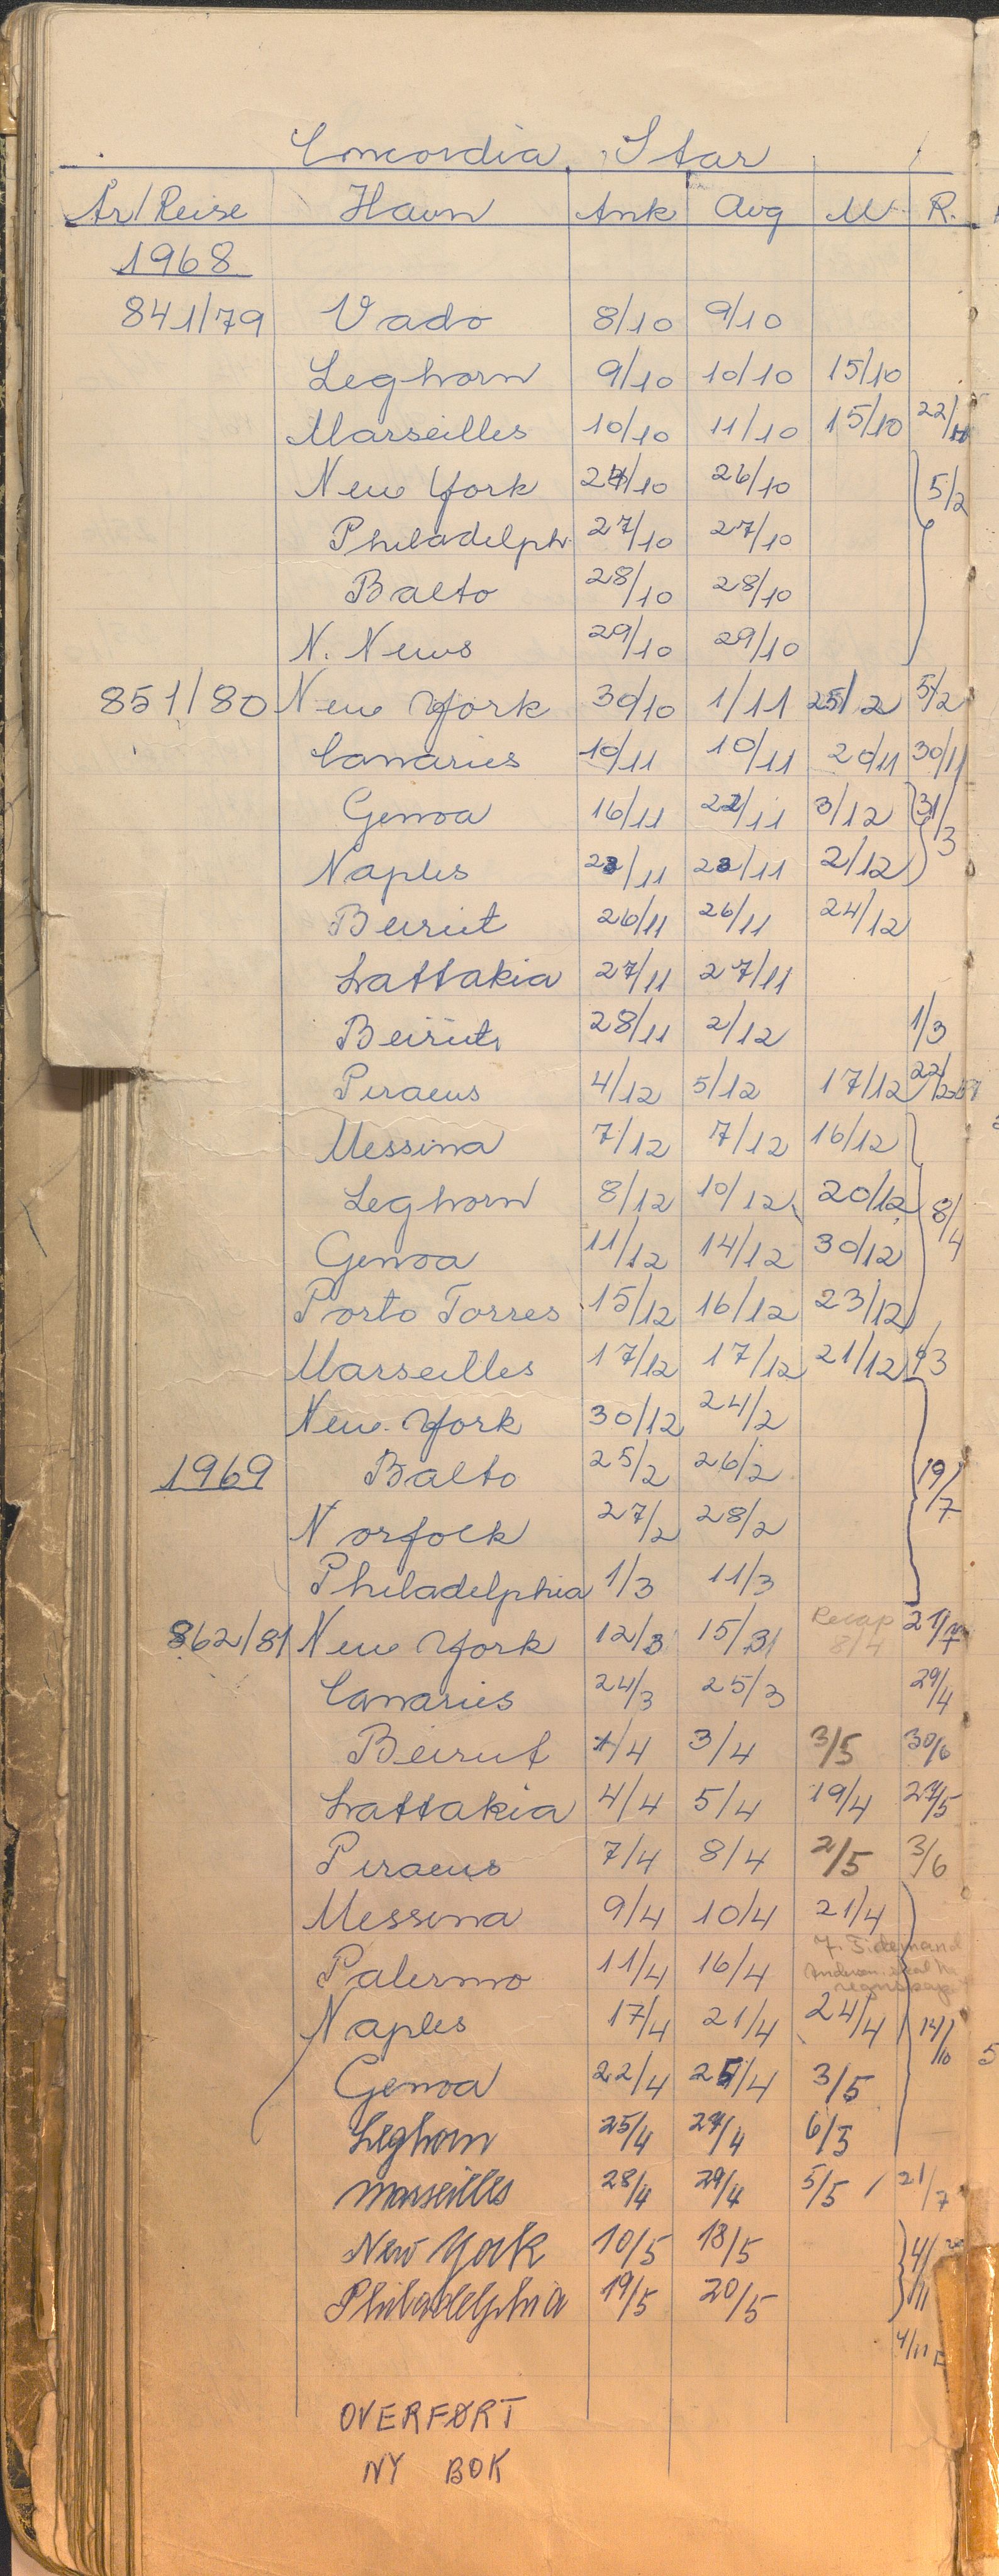 Concordia Star
År/Reise Havn Ank Avg M R.
1968
841/79 Vado 8/10 9/10
Leghorn 9/10 10/10 15/10
Marseilles 10/10 11/10 15/10 22/10
New York 24/10 26/10 5/2
Philadelph. 27/10 27/10
Balto 28/10 28/10
N. News 29/10 29/10
851/80 New York 30/10 1/11 25/2 5/2
Canaries 10/11 10/11 20/11 30/11
Genoa 16/11 22/11 3/12 31/3
Naples 23/11 23/11 2/12
Beirut 26/11 26/11 24/12
Lattakia 27/11 27/11
Beirut 28/11 2/12 1/3
Piraeus 4/12 5/12 17/12
Messina 7/12 7/12 16/12
Leghorn 8/12 10/12 20/12 8/4
Genoa 11/12 14/12 30/12
Porto Torres 15/12 16/12 23/12
Marseilles 17/12 17/12 21/12
New York 30/12 24/2
1969 Balto 25/2 26/2 19/7
Norfolk 27/2 28/2
Philadelphia 1/3 11/3
862/81 New York 12/3 15/3 Recap 8/4 21/7
Canaries 24/3 25/3 29/4
Beirut 1/4 3/4 3/5 30/6
Lattakia 4/4 5/4 19/4 27/5
Piraeus 7/4 8/4 2/5 3/6
Messina 9/4 10/4 21/4
Palermo 11/4 16/4
Naples 17/4 21/4 24/4 14/10
Genoa 22/4 25/4 3/5
Leghorn 25/4 27/4 6/5
Marseilles 28/4 29/4 5/5 21/7
New York 10/5 18/5 4/11
Philadelphia 19/5 20/5
4/11
OVERFØRT
NY BOK